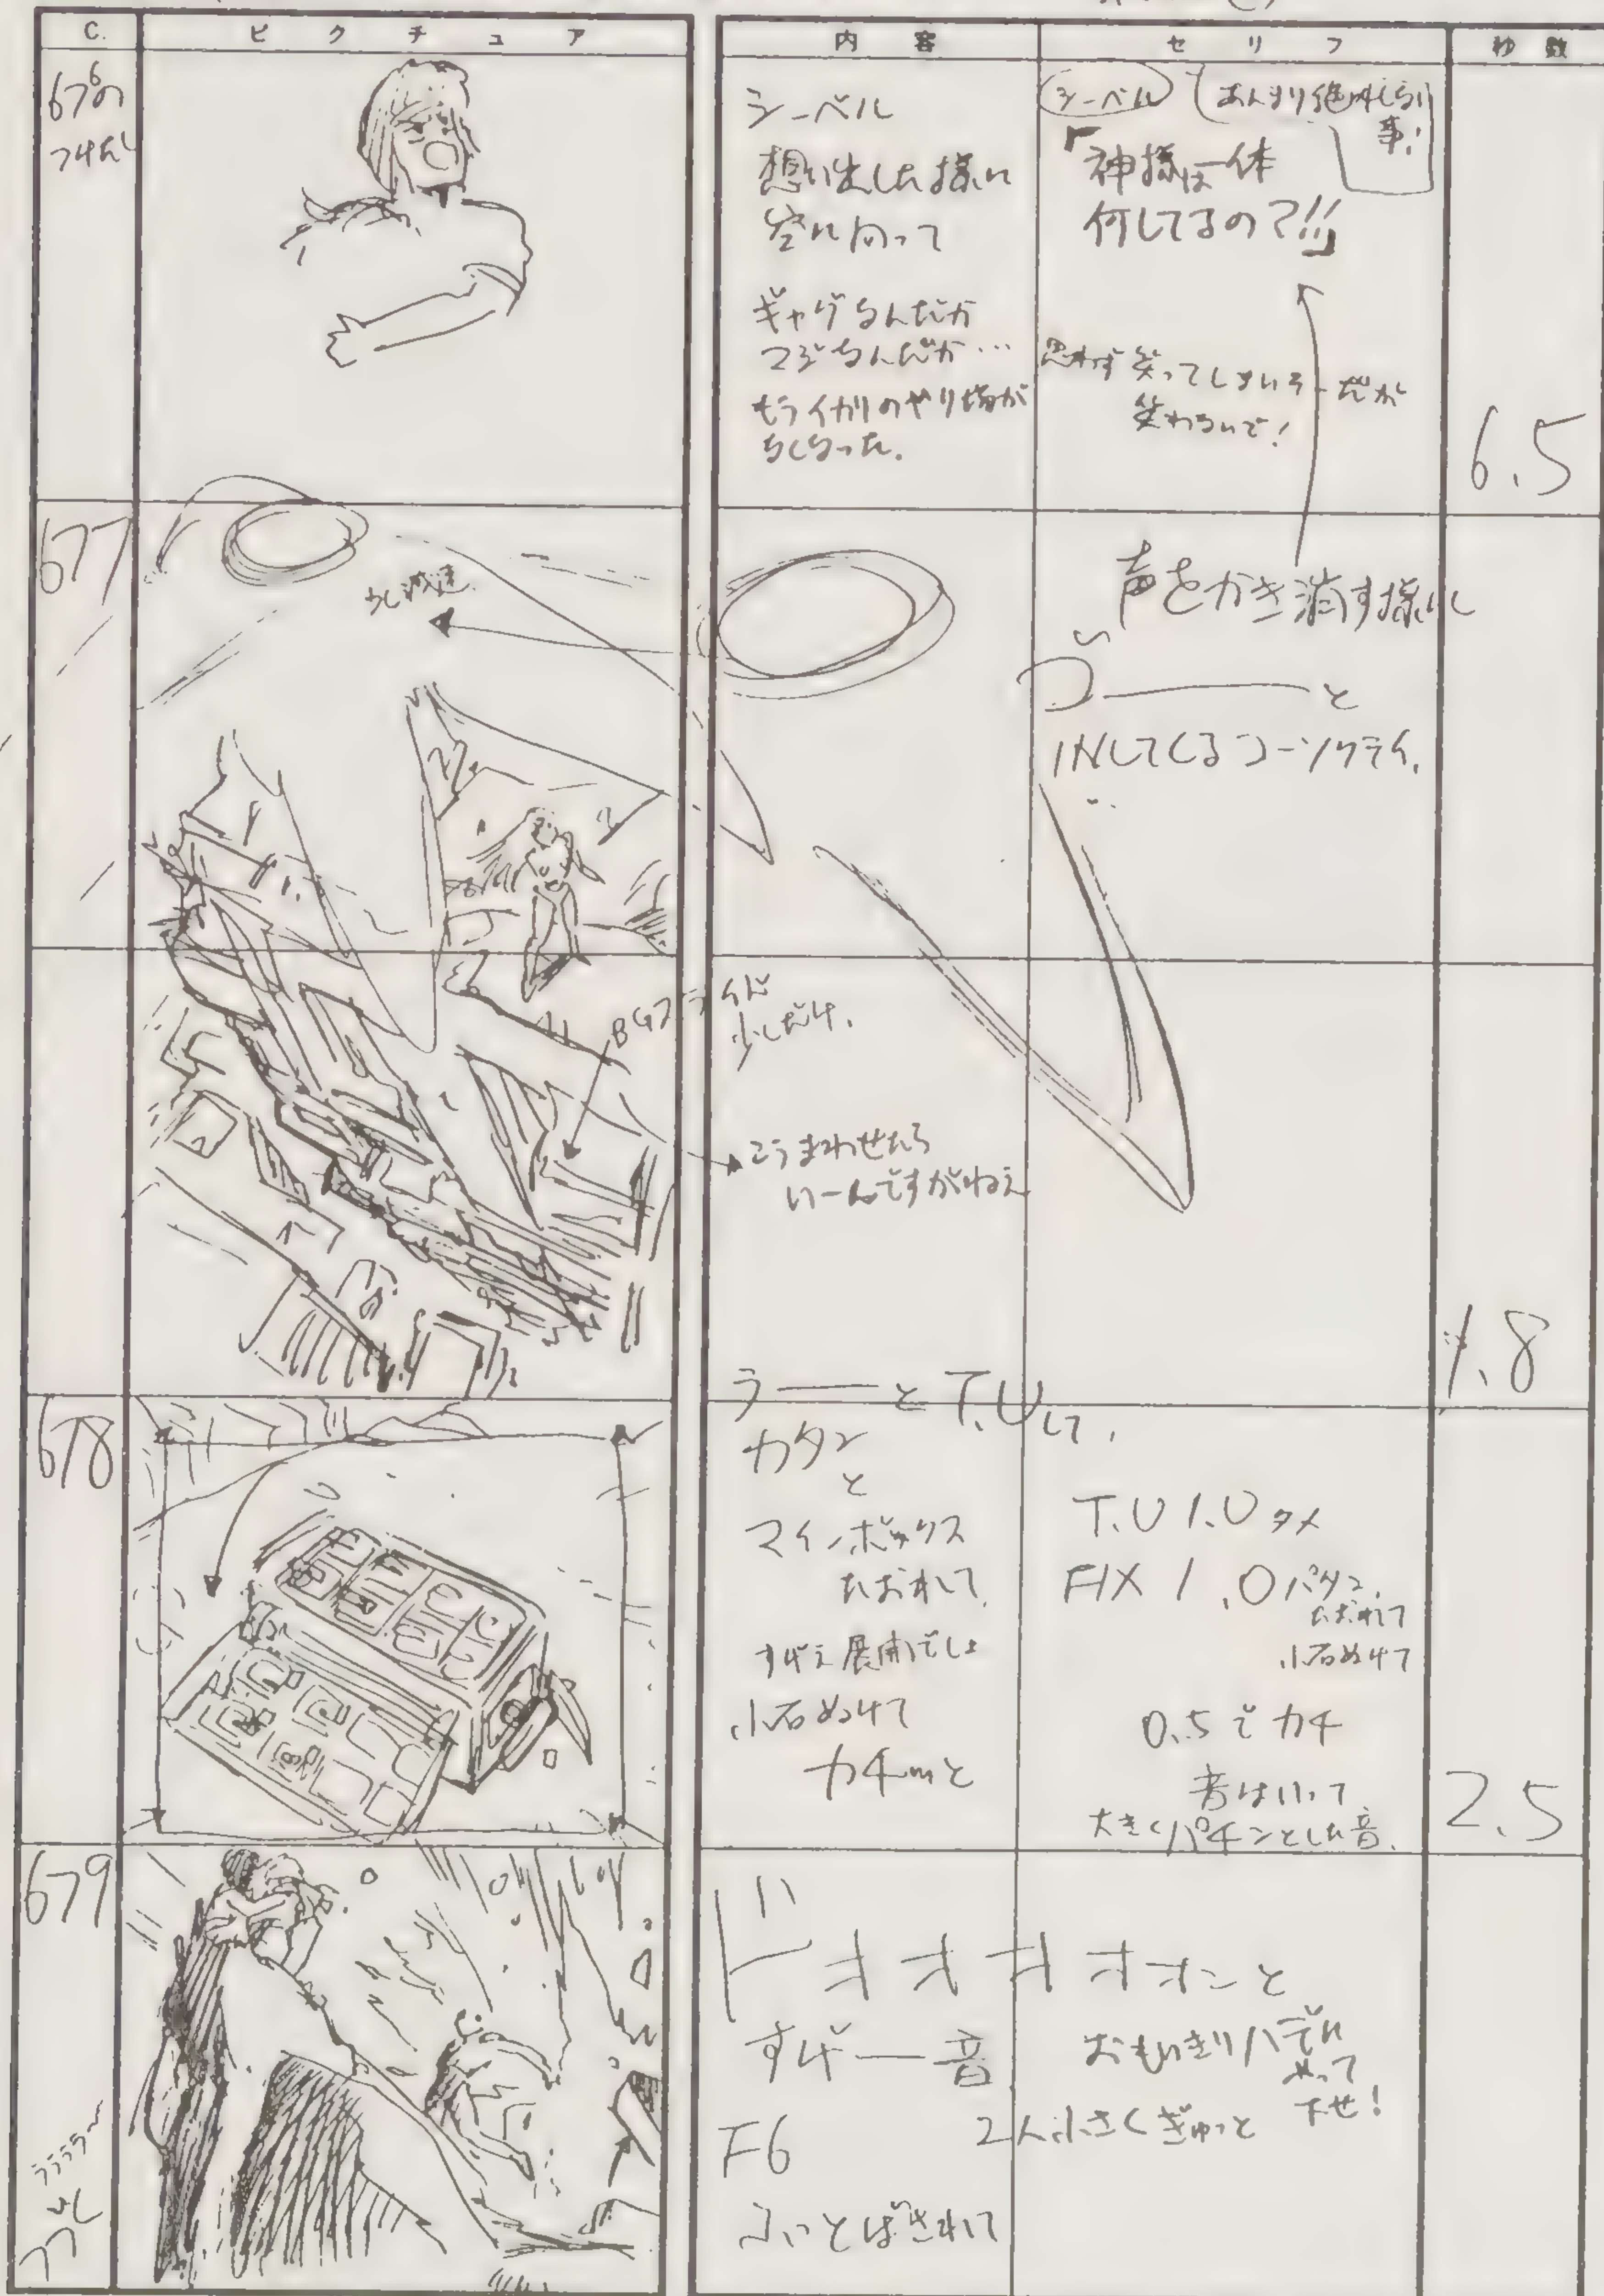 C.
ピクチュア
内容
セリフ
秒数
676の
シーベル
想い出した様に
空に向って
ギャグなんだか
マジなんだか…
もうイカリのやり場が
なくなった。
シーベル
あんまり
事!
「神様は一体
何してるの?!!」
思わず笑ってしまいそーだが
笑わないで!
6.5
677
少し減速
声をかき消す様に
ゴ――――と
INしてくるコーソクテイ.
BGスライド
少しだけ.
こうまわせたら
いーんですがねえ
1.8
678
ラ――とT.Uして.
カタン
と
マインボックス
たおれて
すげえ展開でしょ
小石ぬけて
カチッと
T.U 1.0 タメ
FIX 1.0 パタン.
たおれて
小石ぬけて
0.5でカチ
音はいって
大きくパチンとした音.
2.5
679
つづく
ドオオオオオンと
すげー音
おもいきりハデに
やって
下せ!
2人小さくぎゅっと
F6
ふっとばされて